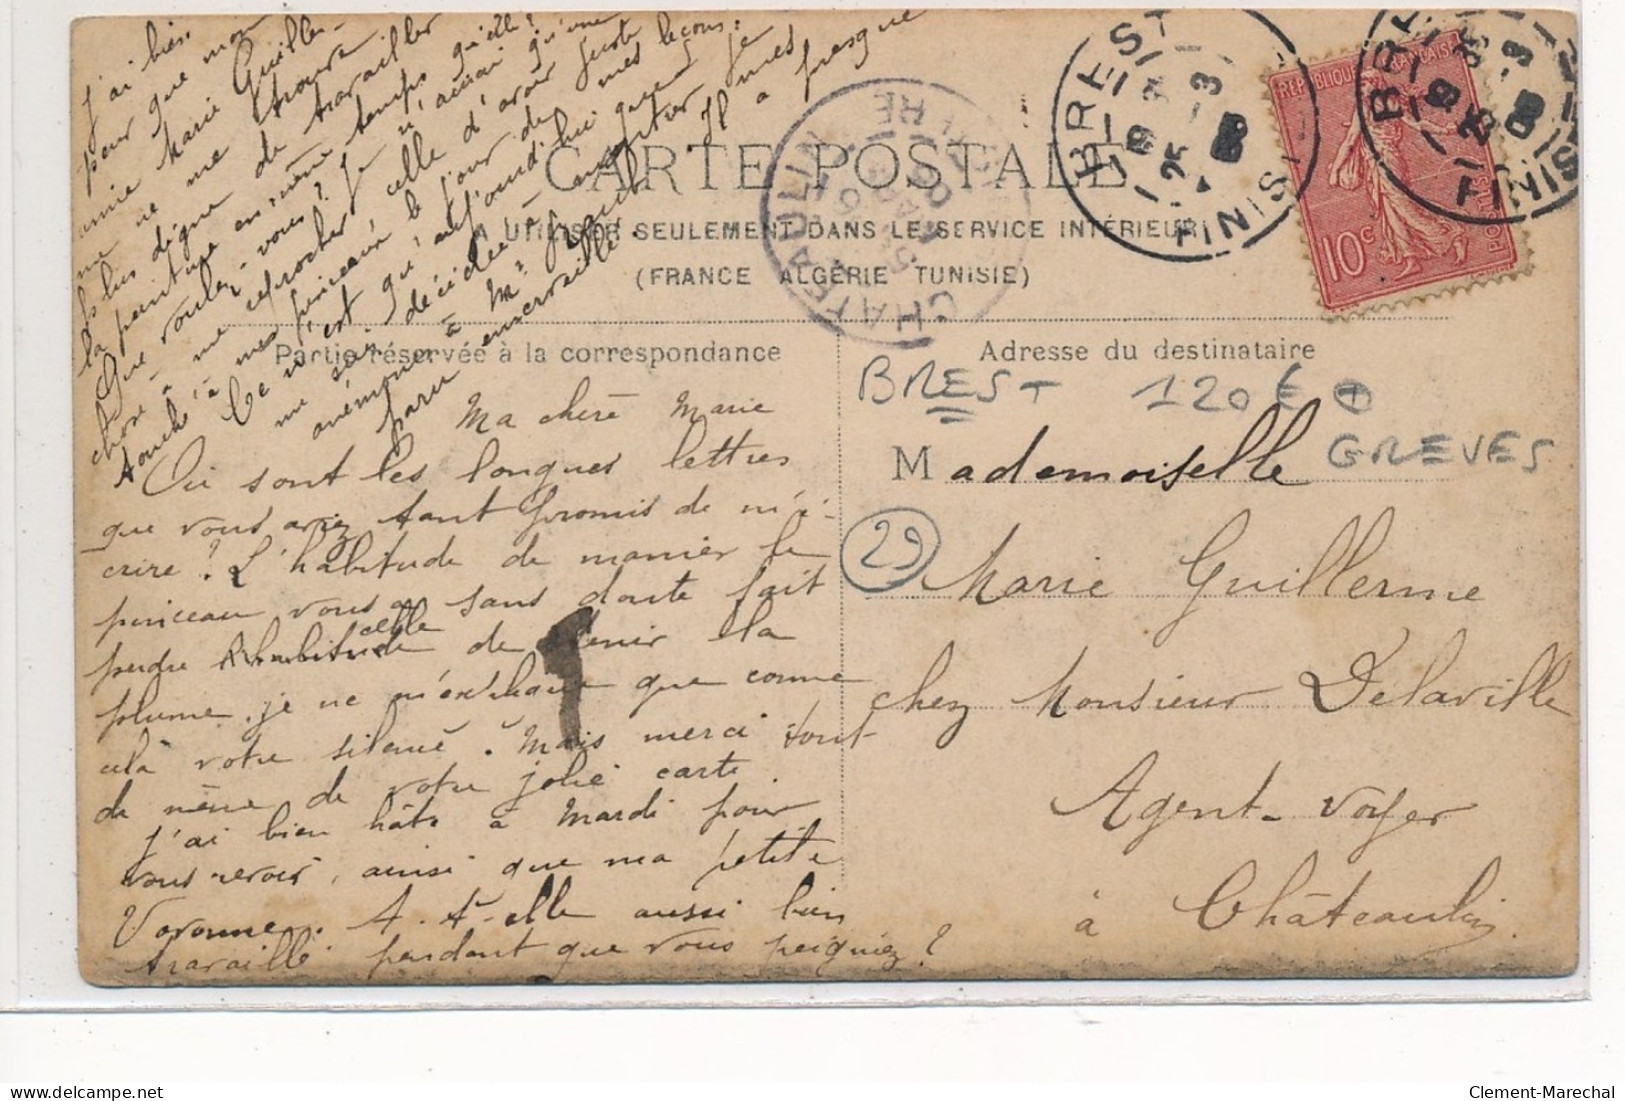 CARTE POSTALE
A UTILISER SEULEMENT DANS LE SERVICE INTÉRIEUR
(FRANCE ALGÉRIE TUNISIE)
Partie réservée à la correspondance
Adresse du destinataire
BREST
FINIS
BRE
FINIS
CHATEAULIN
RÉPUBLIQUE FRANÇAISE
10c
POSTES
BREST 120 € +
GREVES
29
Mademoiselle
Marie Guillerme
chez Monsieur Delaville
Agent-voyer
à Châteaulin
Ma chère Marie
Où sont les longues lettres
que vous aviez tant promis de m'é-
crire ? L'habitude de manier le
pinceau vous a sans doute fait
perdre celle de tenir la
plume, je ne m'explique que comme
celà votre silence. Mais merci tout
de même de votre jolie carte.
J'ai bien hâte à Mardi pour
vous revoir, ainsi que ma petite
Yvonne. A-t-elle aussi bien
travaillé pendant que vous peigniez ?
J'ai bien
peur que mon
amie Marie Guiller-
me ne me trouve
plus digne de travailler
la peinture en même temps qu'elle ?
Que voulez-vous ? Je n'aurai qu'une
chose à me reprocher celle d'avoir juste
touché à mes pinceaux le jour de mes leçons.
Ce n'est qu'aujourd'hui que je
me suis décidée à
Clement-Marechal